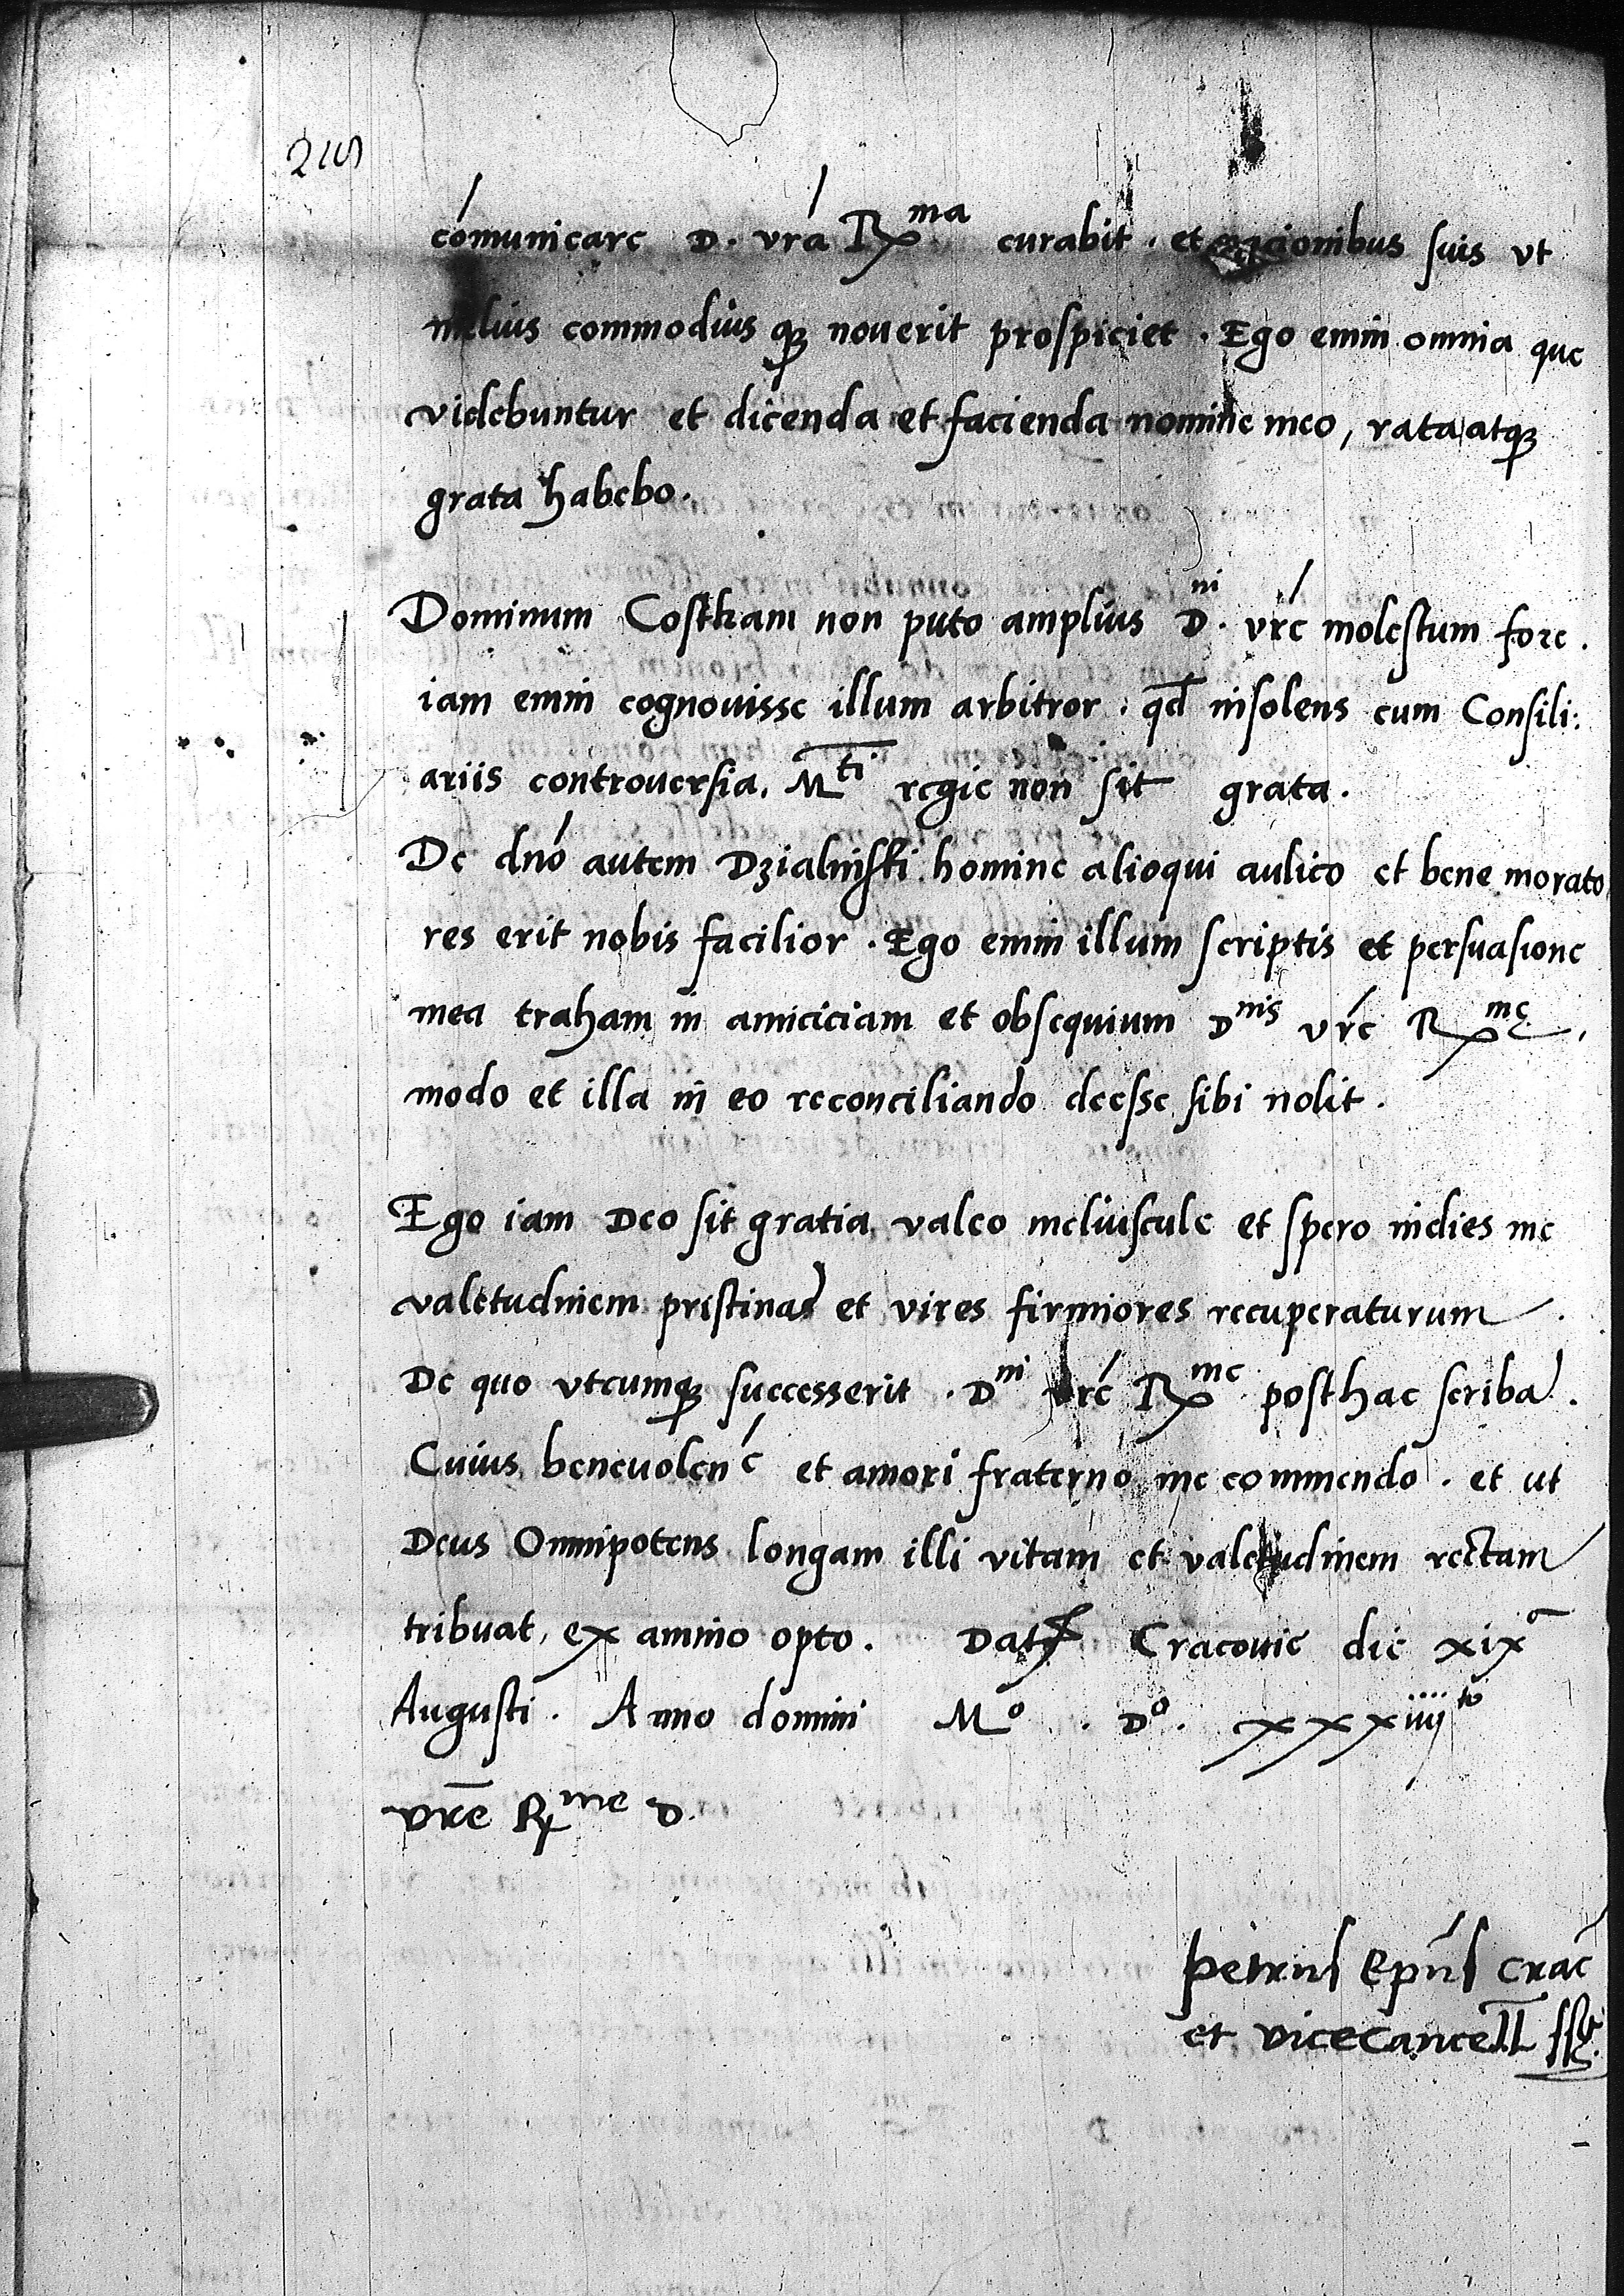 co͞municare D. vr͞a Rx^ma curabit. et suis vt
melius commodius qꝫ nouerit prospiciet. Ego enim omnia que
videbuntur et dicenda et facienda nomine meo, rata atqꝫ
grata habebo.
Dominum Costkam non puto amplius D.^ni vr͞e molestum fore.
iam enim cognouisse illum arbitror: qd͞ insolens cum Consili:
ariis controuersia. M^ti regie non sit grata.
De dn͞o autem Dzialinski homine alioqui aulico et bene morato
res erit nobis facilior. Ego enim illum scriptis et persuasione
mea traham in amiciciam et obsequium D^nis vr͞e Rx^me,
modo et illa in eo reconciliando deesse sibi nolit.
Ego iam Deo sit gratia, valeo meliuscule et spero indies me
valetudinem pristina͞ et vires firmiores recuperaturum.
De quo vtcumqꝫ successerit. D^ni vr͞e Rx^me posthac scriba͞.
Cuius beneuolen͞e et amori fraterno me commendo. et ut
Deus Omnipotens longam illi vitam et valetudinem rectam
tribuat, ex animo opto. Dat Cracouie die xix^a
Augusti. Anno domini M^o. D^o. xxxiiii^to
Vr͞e Rx^me D.
petrus Ep͞us Crac͞
et vicecancell͞ ss^t.